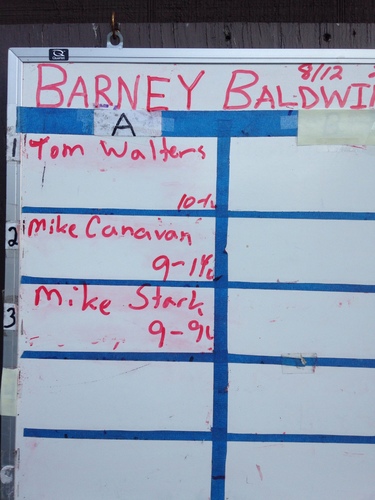 BARNEY BALDWIN
8/12
A
1 Tom Walters
2 Mike Canavan
3 Mike Stark